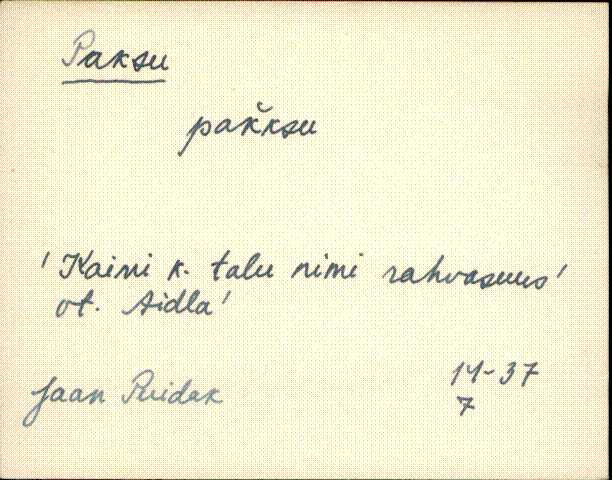 Paksu
pak̆ksu
' Kaini k. talu nimi rahvasuus'
ot. Aidla'
Jaan Puidak 14-37
7